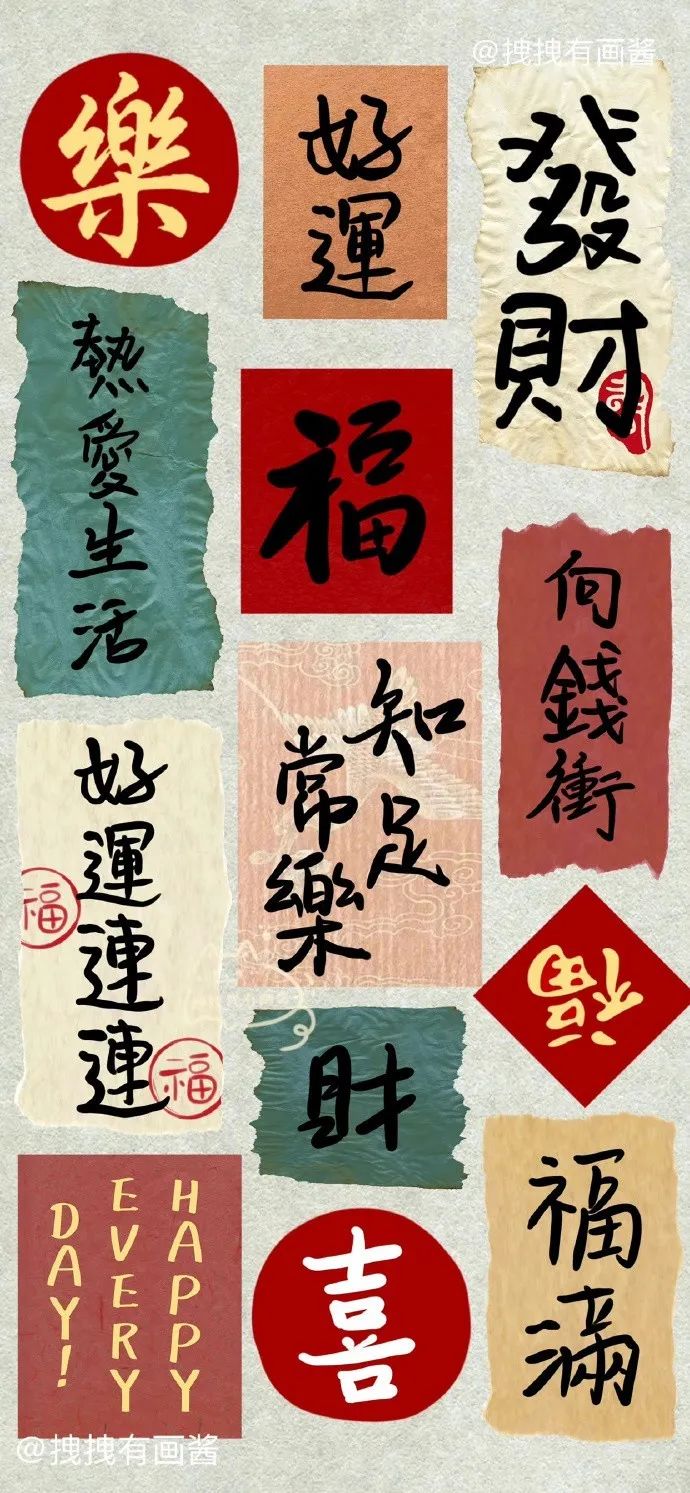 @拽拽有画酱
樂
好運
發財
熱愛生活
福
向錢衝
知足
常樂
好運連連
福
福
福
財
HAPPY
EVERY
DAY!
喜
福滿
@拽拽有画酱